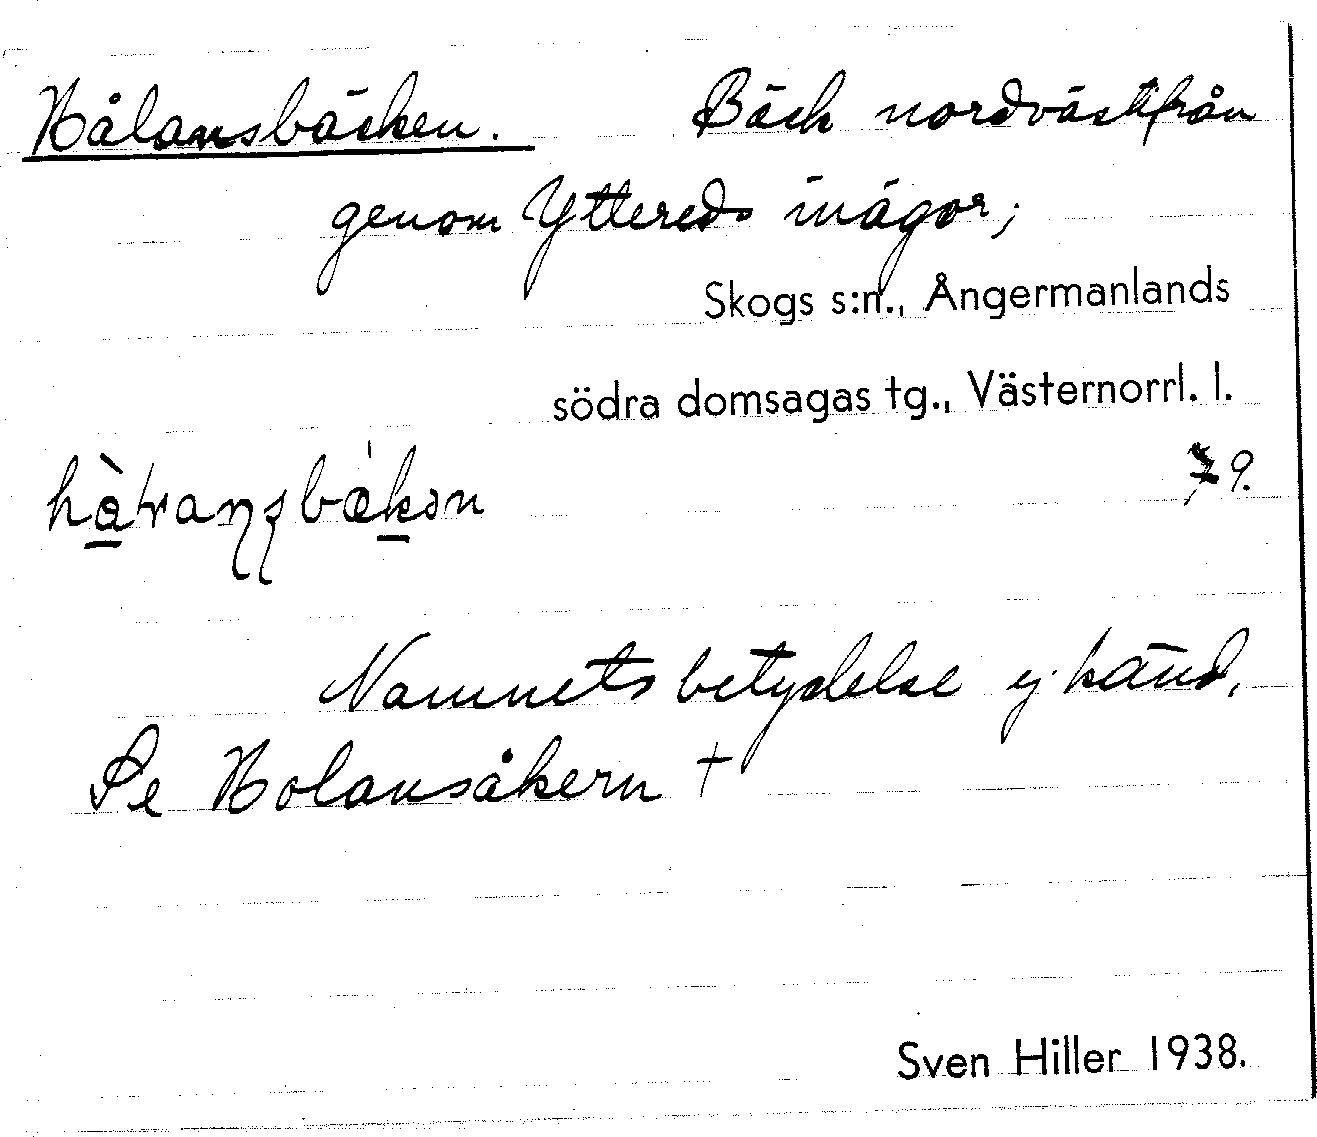 Hålansbäcken. Bäck nordvästfrån
genom Yttereds inägor;
Skogs s:n., Ångermanlands
södra domsagas tg., Västernorrl. l.
9.
Namnets betydelse ej känd.
Se Holansåkern †
Sven Hiller 1938.